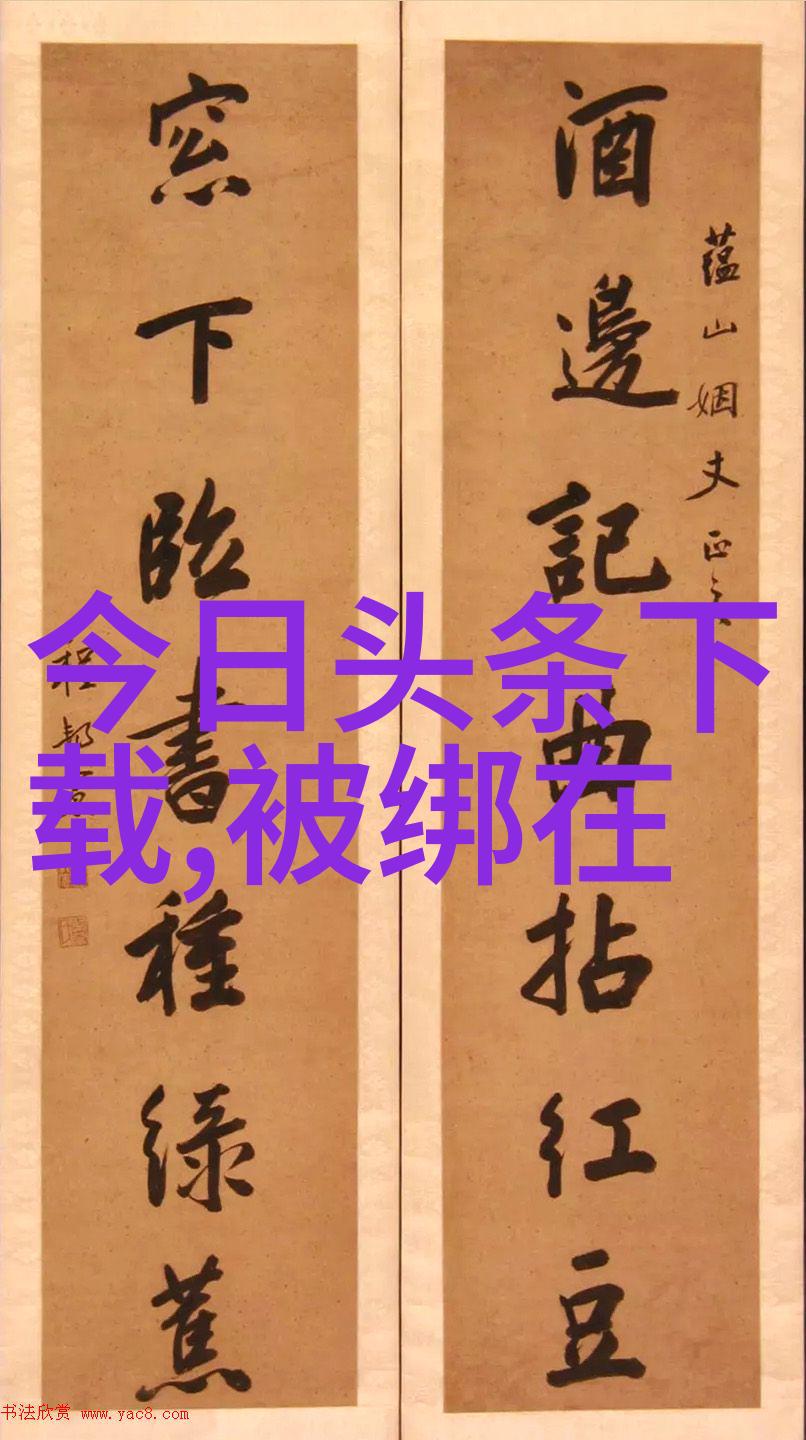 酒邊記曲拈紅豆
蘊山姻丈正之
窓下臨書種綠蕉
程
今日头条下
载,被绑在
书法欣赏 www.yac8.com